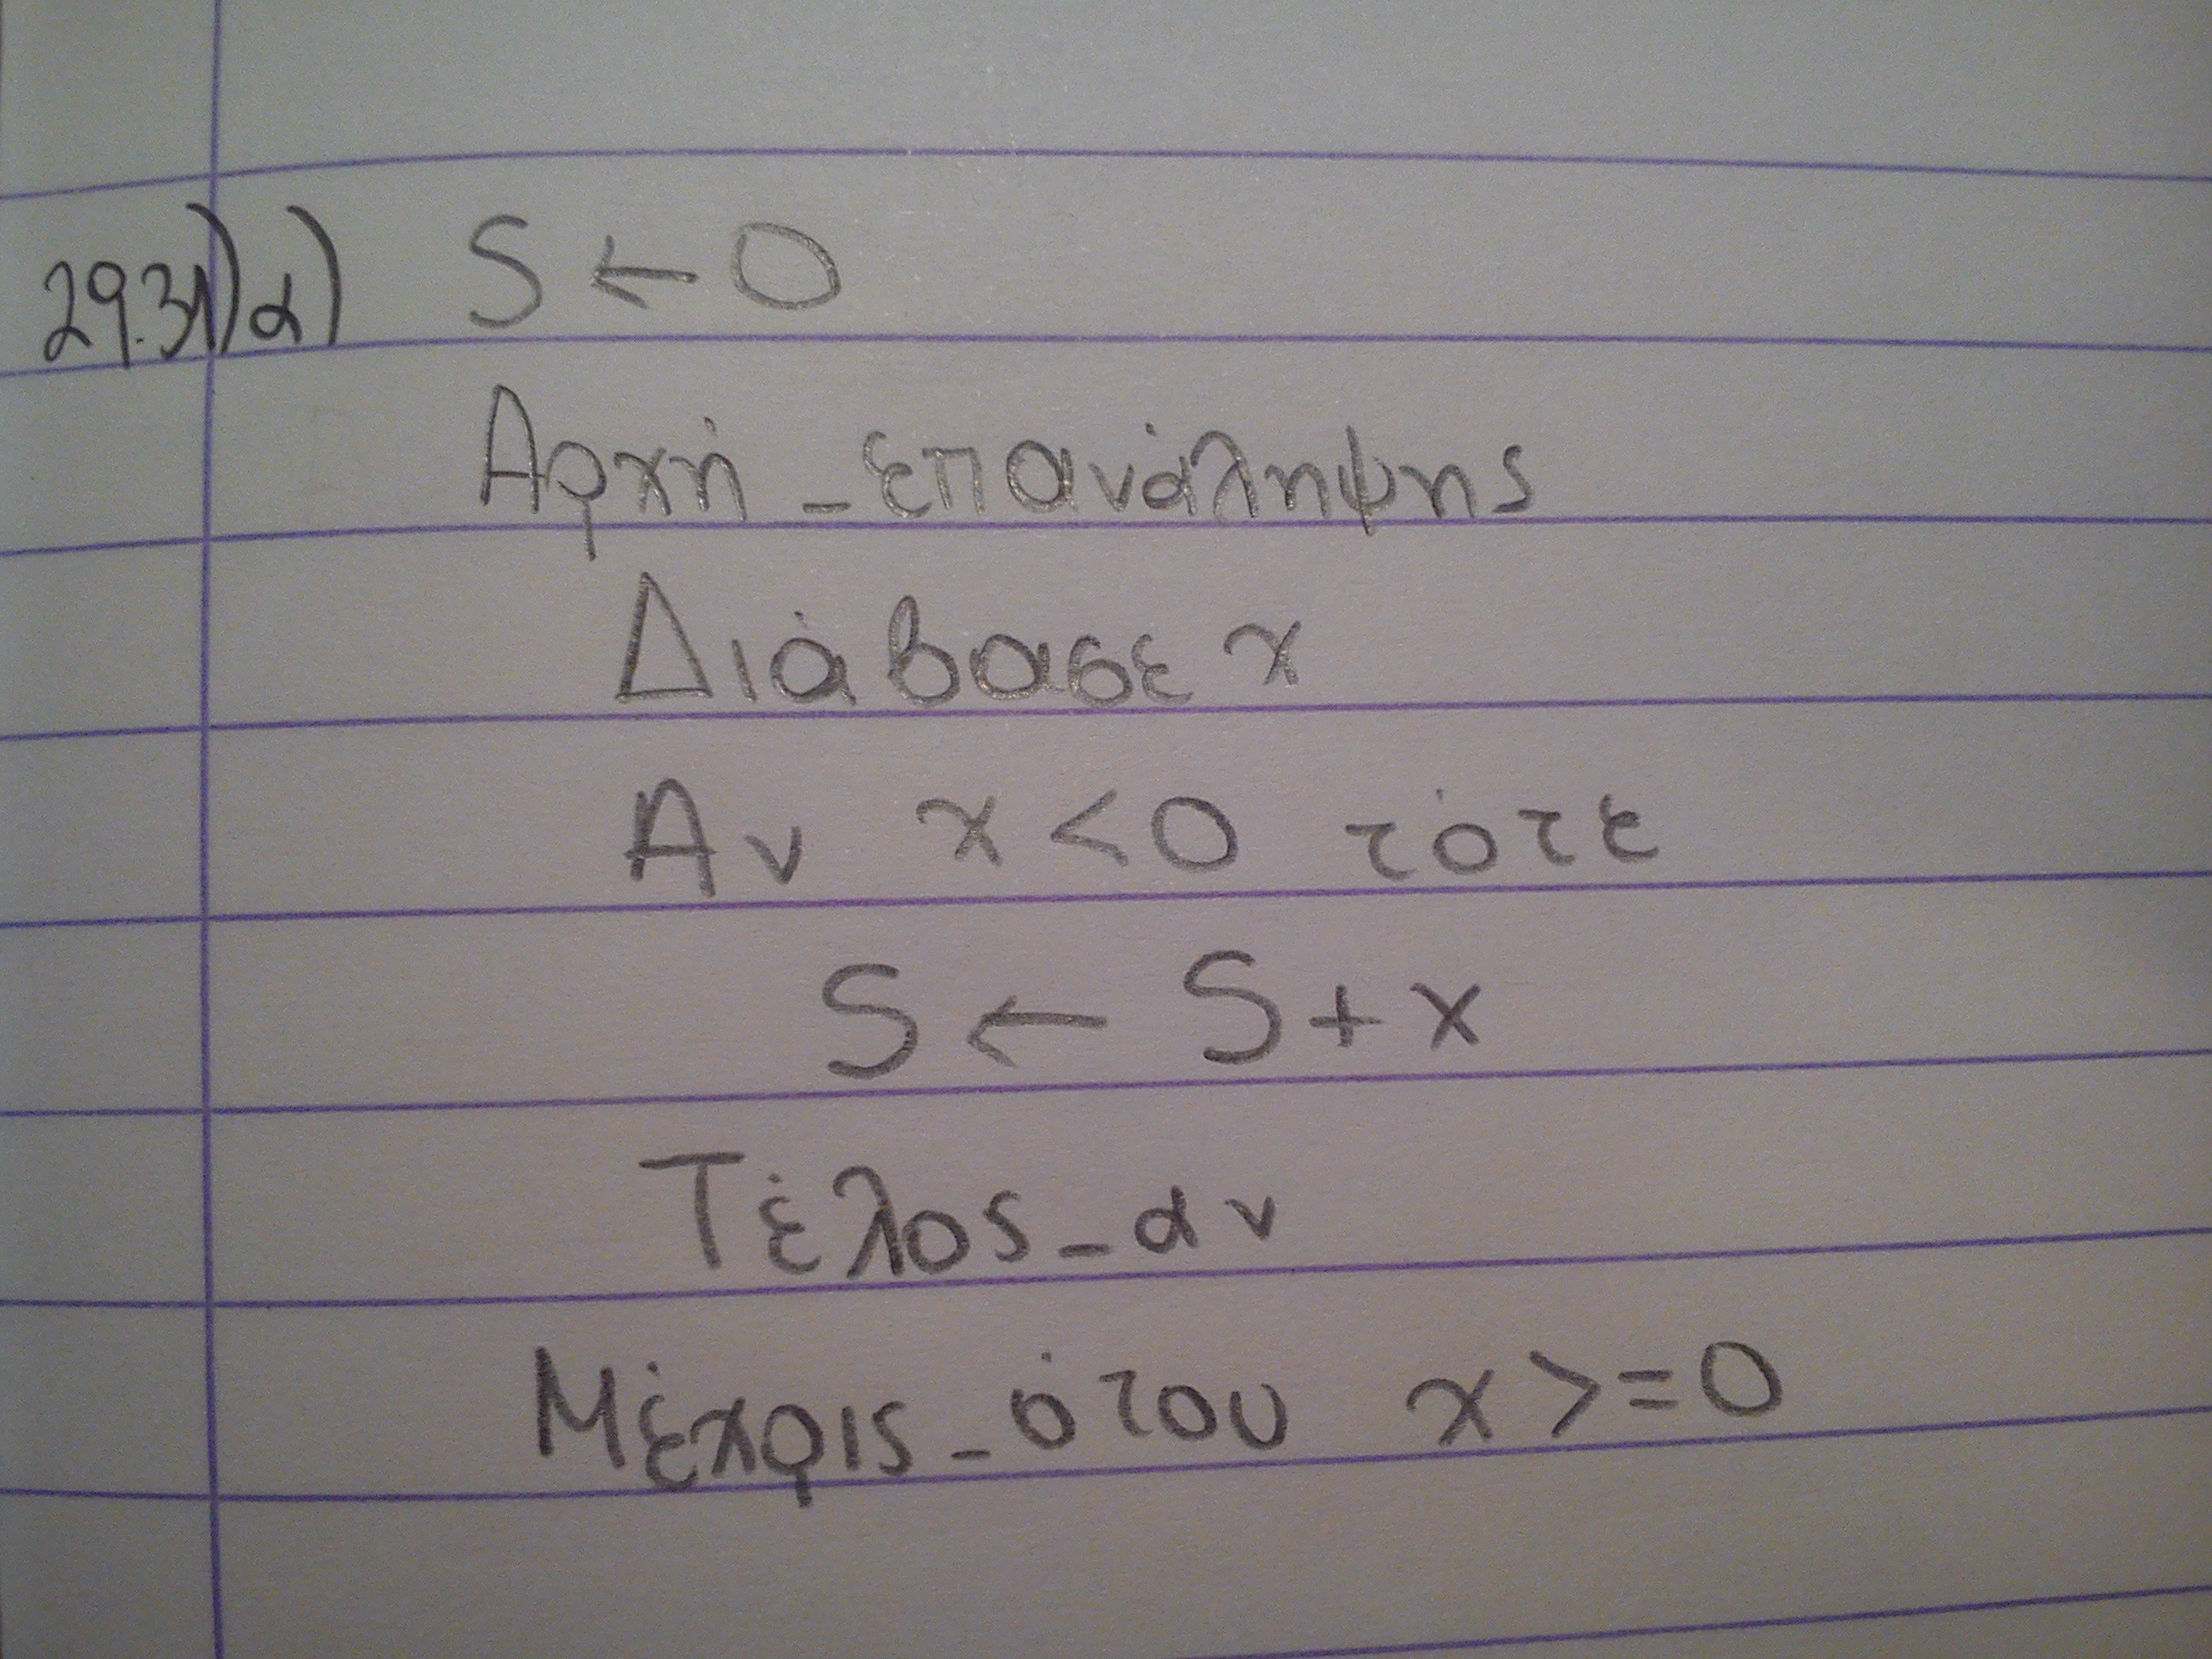 29.31) α) S ← 0
Αρχή_επανάληψης
Διάβασε x
Αν x < 0 τότε
S ← S + x
Τέλος_αν
Μέχρις_ότου x >= 0